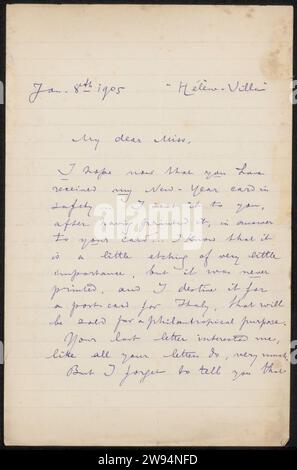 Jan. 8th 1905 "Hélène-Villa"
My dear Miss,
I hope now that you have
received my New-Year card in
safety I sent it to you,
after having it, in answer
to your card. I know that it
is a little etching of very little
importance, but it was never
printed, and I destine it for
a post-card for Italy, that will
be sold for a philantropical purpose.
Your last letter interested me,
like all your letters do, very much.
But I forget to tell you that
alamy
Image ID: 2W94NFD
www.alamy.com